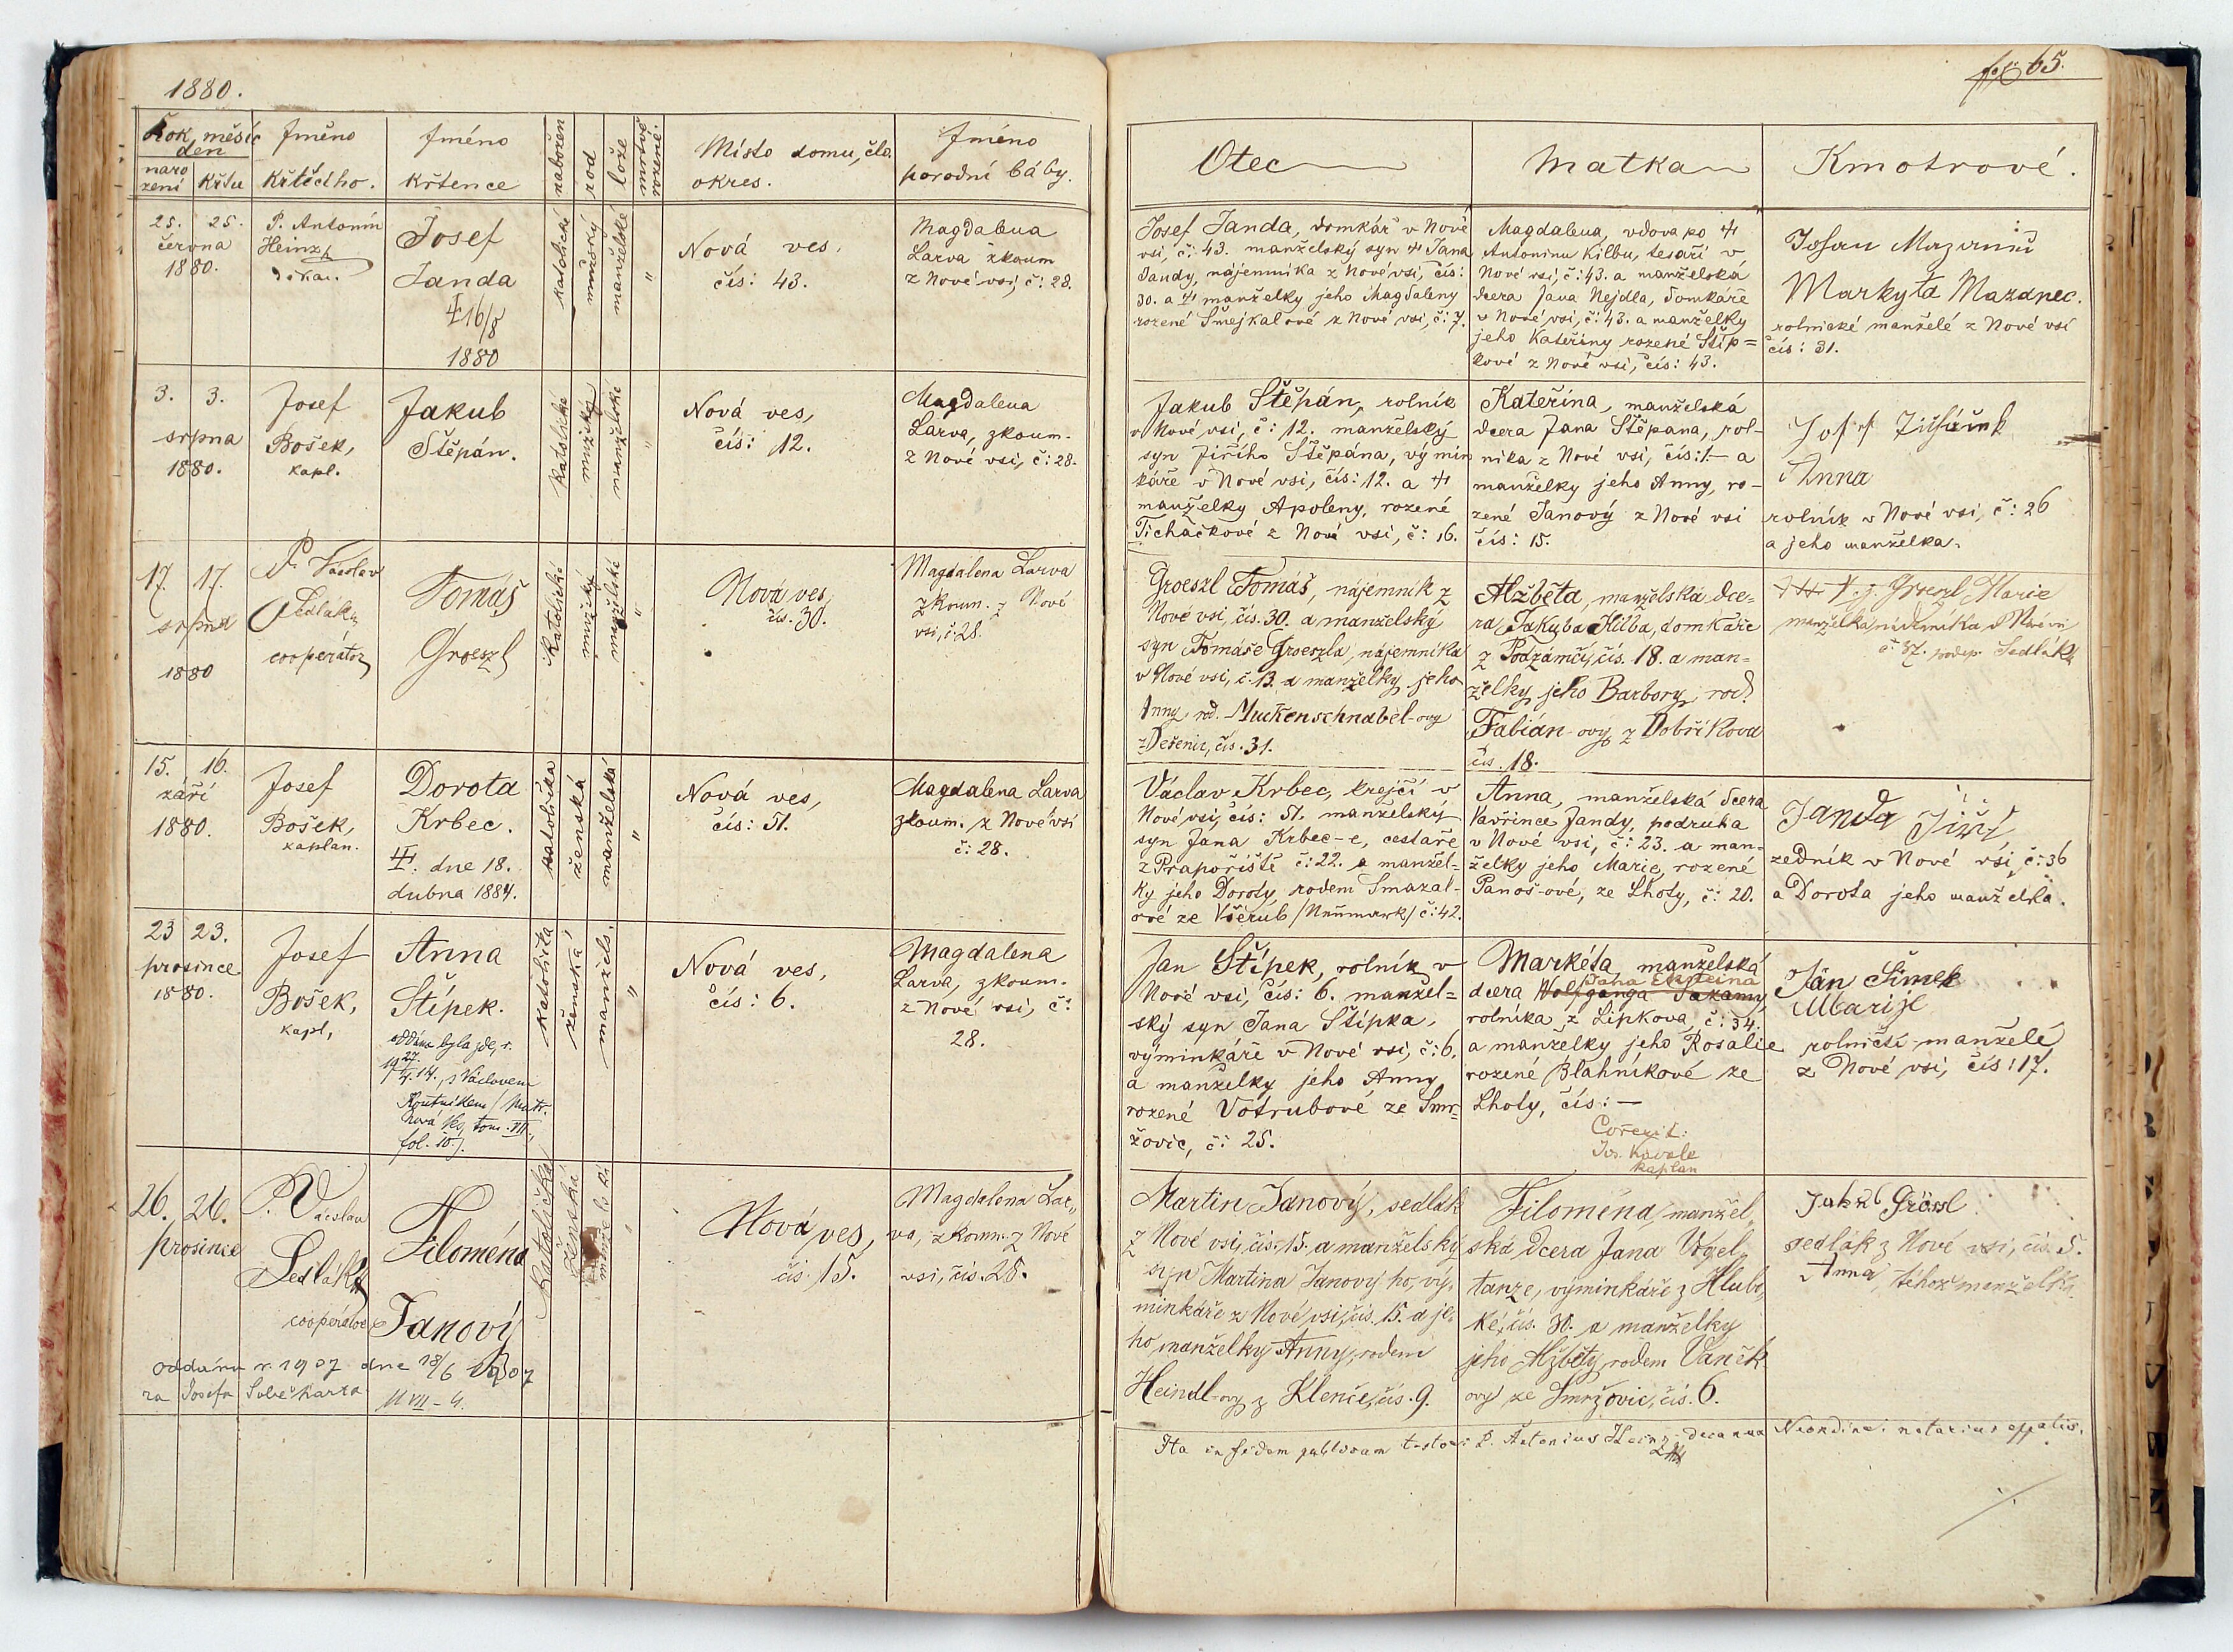 1880.
fol. 65.
Rok, měsíc
den
naro
zení
křtu
Jméno
křtícího.
Jméno
křtence
nabožen
rod
lože
mrtvě
rozené.
Místo domu, čís.
okres.
Jméno
porodní báby.
Otec
Matka
Kmotrové.
25. 25.
června
1880.
P. Antonín
Heinz
děkan.
Josef
Janda
16/8
1880
katolické
mužský
manželské
"
Nová ves,
čís: 43.
Magdalena
Larva zkoum
z Nové vsi, č: 28.
Josef Janda, domkář v Nové
vsi, č: 43. manželský syn † Jana
Jandy, nájemníka z Nové vsi, čís:
30. a † manželky jeho Magdaleny
rozené Smejkalové z Nové vsi, č: 7.
Magdalena, vdova po †
Antonínu Kilbu, tesaři v
Nové vsi, č: 43. a manželská
dcera Jana Nejdla, domkáře
v Nové vsi, č: 43. a manželky
jeho Kateřiny rozené Štíp=
kové z Nové vsi, čís: 43.
Markyta Mazanec.
rolnické manželé z Nové vsi
čís: 31.
3. 3.
srpna
1880.
Josef
Bošek,
kapl.
Jakub
Štěpán.
katolické
mužský
manželské
"
Nová ves,
čís: 12.
Magdalena
Larva, zkoum.
z Nové vsi, č: 28.
Jakub Štěpán, rolník
v Nové vsi, č: 12. manželský
syn Jiřího Štěpána, výmin
káře v Nové vsi, čís: 12. a †
manželky Apoleny, rozené
Ticháčkové z Nové vsi, č: 16.
Kateřina, manželská
dcera Jana Štěpana, rol-
níka z Nové vsi, čís: 1.— a
manželky jeho Anny, ro-
zené Janový z Nové vsi
čís: 15.
Anna
rolník v Nové vsi, č: 26
a jeho manželka.
17. 17.
srpna
1880
P. Václav
Sedlák
cooperátor
Tomáš
Groeszl
katolické
mužský
manželské
"
Nová ves,
čís. 30.
Magdalena Larva
zkoum. z Nové
vsi, č. 28.
Groeszl Tomáš, nájemník z
Nové vsi, čís. 30. a manželský
syn Tomáše Groeszla, nájemníka
v Nové vsi, č. 13. a manželky jeho
Anny rod. Muckenschnabel-ovy
z Dešenic, čís. 31.
Alžběta, manželská dce=
ra Jakyba Kilba, domkáře
z Podzámčí, čís. 18. a man=
želky jeho Barbory, rod.
Fabián-ový z Dobříkova
čís. 18.
Groeszl Marie
manželka nádeníka v Nové vsi
č: 37. podep. Sedlák
15. 16.
září
1880.
Josef
Bošek,
kaplan.
Dorota
Krbec.
†. dne 18.
dubna 1884.
katolička
ženská
manželská
"
Nová ves,
čís: 51.
Magdalena Larva
zkoum. z Nové vsi
č: 28.
Václav Krbec, krejčí v
Nové vsi, čís: 51. manželský
syn Jana Krbec-e, cestaře
z Prapořiště č: 22. a manžel=
ky jeho Doroty, rodem Smazal-
ové ze Všerub /Neumark/ č: 42.
Anna, manželská dcera
Vavřince Jandy, podruha
v Nové vsi, č: 23. a man-
želky jeho Marie, rozené
Panoš-ové, ze Lhoty, č: 20.
Janda Jiří,
zedník v Nové vsi, č: 36
a Dorota jeho manželka.
23 23.
prosince
1880.
Josef
Bošek,
kapl,
Anna
Štípek.
oddána byla zde, r.
s Václavem
Routníkem / Matr.
Nová Ves, tom. III.,
fol. 10.
katolička
ženská
manžels.
"
Nová ves,
čís: 6.
Magdalena
Larva, zkoum.
z Nové vsi, č:
28.
Jan Štípek, rolník v
Nové vsi, čís: 6. manžel=
ský syn Jana Štípka,
výminkáře v Nové vsi, č: 6.
a manželky jeho Anny
rozené Votrubové ze Smr=
žovic, č: 25.
Markéta, manželská
Jana Eksteina
dcera Wolfganga
rolníka z Lipkova, č: 34.
a manželky jeho Rosalie
rozené Blahníkové ze
Lhoty, čís: —
Correxit:
Jos. Kavale
kaplan
Ján Šimek
Marije
rolničtí manželé
z Nové vsi, čís: 17.
26. 26.
prosince
P. Václav
Sedlák
cooperátor
Filoména
Janový
oddána r. 1907 dne 18/6 1907
za Josefa
III VII - 4.
Katolička
Ženská
manželská
"
Nová ves,
čís. 15.
Magdalena Lar„
va, zkoum. z Nové
vsi, čís. 28.
Martin Janový, sedlák
z Nové vsi, čís. 15. a manželský
syn Martina Janový ho, vý„
minkáře z Nové vsi, čís. 15. a je„
ho manželky Anny, rodem
Heindl-ovy z Klenčé, čís. 9.
Filoména, manžel„
ská dcera Jana Vogel„
tanze, výminkáře z Hlubo„
ké, čís. 30. a manželky
jeho Alžběty, rodem Vaněk
ový ze Smržovic, čís. 6.
Jakub Grössl
sedlák z Nové vsi, čís. 5.
Anna, téhož manželka.
Ita in fidem publicam testor: P. Antonius Heinz, decanus Neondini. notarius eppalis.